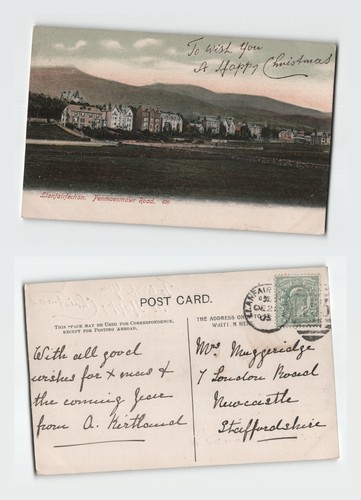 To Wish You
A Happy Christmas
Llanfairfechan. Penmaenmawr Road.
POST CARD.
THIS SPACE MAY BE USED FOR CORRESPONDENCE,
EXCEPT FOR POSTING ABROAD.
THE ADDRESS ON
With all good
wishes for xmas &
the coming Year
from A. Kirtland
LLANFAIR
Mrs Muggeridge
7 London Road
Newcastle
Staffordshire